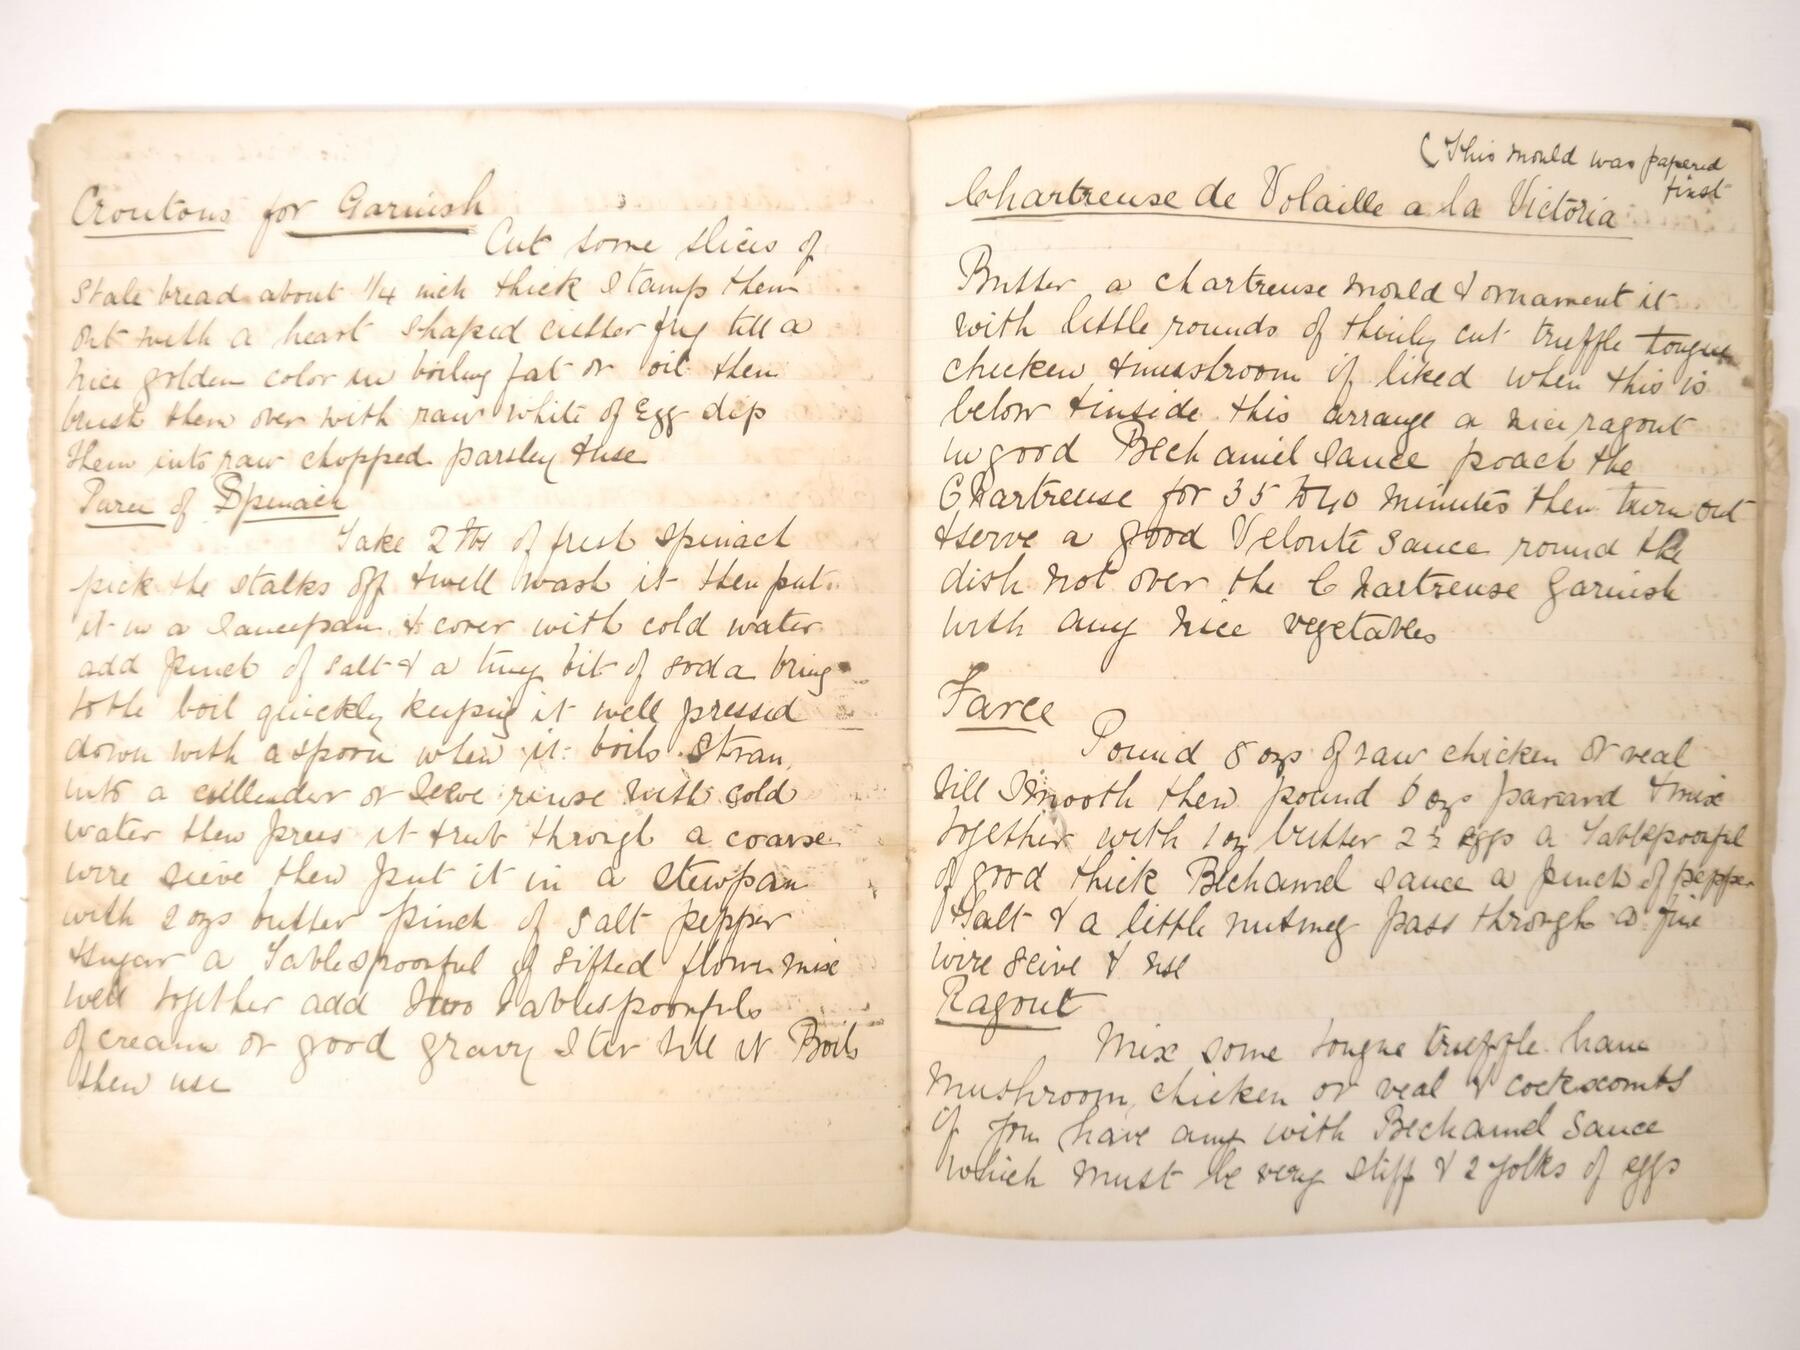 Croutons for Garnish
Cut some slices of
stale bread about 1/4 inch thick stamp them
out with a heart shaped cutter fry till a
nice golden color in boiling fat or oil then
brush them over with raw white of Egg dip
them into raw chopped parsley & use
Puree of Spinach
Take 2 lbs of fresh spinach
pick the stalks off & well wash it then put
it in a saucepan & cover with cold water
add pinch of salt & a tiny bit of soda bring
to the boil quickly keeping it well pressed
down with a spoon when it boils stran
into a cullender or seeve rinse with cold
water then press it & rub through a coarse
wire sieve then put it in a stewpan
with 2 ozs butter pinch of salt pepper
& sugar a Tablespoonful of sifted flour mix
well together add two tablespoonfuls
of cream or good gravy stir till it Boils
then use
(This mould was papered
first
Chartreuse de Volaille a la Victoria
Butter a chartreuse mould & ornament it
with little rounds of thinly cut truffle tongue
chicken & mushroom if liked when this is
below & inside this arrange a nice ragout
in good Bechamel sauce poach the
Chartreuse for 35 to 40 minutes then turn out
& serve a good Veloute sauce round the
dish not over the Chartreuse Garnish
with any nice vegetables
Farce
Pound 8 ozs of raw chicken or veal
till smooth then pound 6 ozs panard & mix
together with 1 oz butter 2 1/2 eggs a Tablespoonful
of good thick Bechamel sauce a pinch of pepper
& salt & a little nutmeg pass through a fine
wire seive & use
Ragout
Mix some tongue truffle ham
mushroom, chicken or veal & cockscombs
if you have any with Bechamel Sauce
which must be very stiff & 2 yolks of eggs